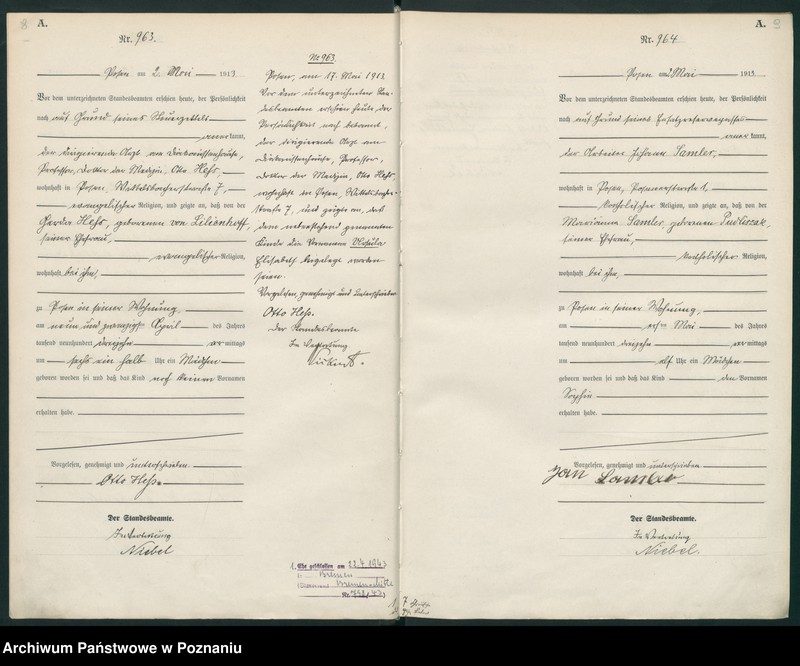 8
A.
Nr. 963.
Posen am 2. Mai 1913
Vor dem unterzeichneten Standesbeamten erschien heute, der Persönlichkeit
nach auf Grund seines Steuerzettels
anerkannt,
der dirigierende Arzt am Diakonissenhause,
Professor, Doktor der Medizin, Otto Hess,
wohnhaft in Posen, Wittelsbacherstrasse 7,
evangelischer Religion, und zeigte an, daß von der
Gerda Hess, geborenen von Lilienhoff,
seiner Ehefrau,
evangelischer Religion,
wohnhaft bei ihm,
zu Posen in seiner Wohnung,
am neun und zwanzigsten April des Jahres
tausend neunhundert dreizehn mittags
um sechs ein halb Uhr ein Mädchen
geboren worden sei und daß das Kind noch keinen Vornamen
erhalten habe.
Vorgelesen, genehmigt und unterschrieben.
Otto Hess.
Der Standesbeamte.
In Vertretung
Niebel
No 963.
Posen, am 17. Mai 1913.
Vor dem unterzeichneten Stan-
desbeamten erschien heute, der
Persönlichkeit nach bekannt,
der dirigierende Arzt am
Diakonissenhause, Professor,
Doktor der Medizin, Otto Hess,
wohnhaft in Posen, Wittelsbacher-
strasse 7, und zeigte an, daß
dem nebenstehend genannten
Kinde die Vornamen Ursula
Elisabeth beigelegt worden
seien.
Vorgelesen, genehmigt und unterschrieben
Otto Hess.
Der Standesbeamte
In Vertretung
1. Ehe geschlossen am 22.4.1943
in Bremen
Nr.
A. 9
Nr. 964
Posen am 2 Mai 1913
Vor dem unterzeichneten Standesbeamten erschien heute, der Persönlichkeit
nach auf Grund seines Ersatzreservepasses
anerkannt,
der Arbeiter Johann Samler,
wohnhaft in Posen,
katholischer Religion, und zeigte an, daß von der
Marianna Samler geborenen
seiner Ehefrau,
katholischer Religion,
wohnhaft bei ihm,
zu Posen in seiner Wohnung,
am ersten Mai des Jahres
tausend neunhundert dreizehn mittags
um elf Uhr ein Mädchen
geboren worden sei und daß das Kind den Vornamen
Sophie
erhalten habe.
Vorgelesen, genehmigt und unterschrieben
Jan Samler
Der Standesbeamte.
In Vertretung
Niebel.
Archiwum Państwowe w Poznaniu